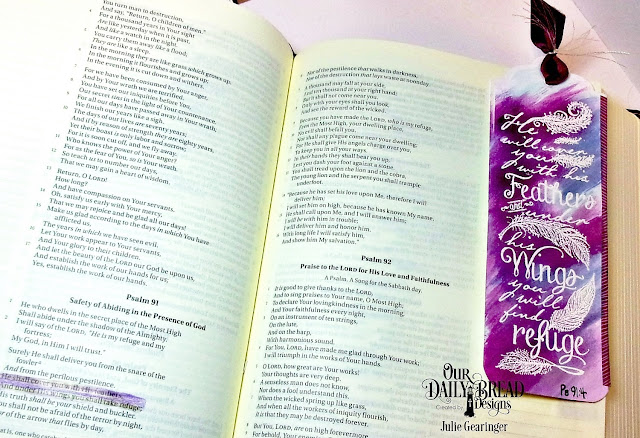 You turn man to destruction,
And say, "Return, O children of men."
4 For a thousand years in Your sight
Are like yesterday when it is past,
And like a watch in the night.
5 You carry them away like a flood;
They are like a sleep.
In the morning they are like grass which grows up:
6 In the morning it flourishes and grows up;
In the evening it is cut down and withers.
7 For we have been consumed by Your anger,
And by Your wrath we are terrified.
8 You have set our iniquities before You,
Our secret sins in the light of Your countenance.
9 For all our days have passed away in Your wrath;
We finish our years like a sigh.
10 The days of our lives are seventy years;
And if by reason of strength they are eighty years,
Yet their boast is only labor and sorrow;
For it is soon cut off, and we fly away.
11 Who knows the power of Your anger?
For as the fear of You, so is Your wrath.
12 So teach us to number our days,
That we may gain a heart of wisdom.
13 Return, O LORD!
How long?
And have compassion on Your servants.
14 Oh, satisfy us early with Your mercy,
That we may rejoice and be glad all our days!
15 Make us glad according to the days in which You have
afflicted us,
The years in which we have seen evil.
16 Let Your work appear to Your servants,
And Your glory to their children.
17 And let the beauty of the LORD our God be upon us,
And establish the work of our hands for us;
Yes, establish the work of our hands.
Psalm 91
Safety of Abiding in the Presence of God
He who dwells in the secret place of the Most High
Shall abide under the shadow of the Almighty.
2 I will say of the LORD, "He is my refuge and my
fortress;
My God, in Him I will trust."
3 Surely He shall deliver you from the snare of the
fowler
And from the perilous pestilence.
He shall cover you with His feathers,
And under His wings you shall take refuge;
His truth shall be your shield and buckler.
You shall not be afraid of the terror by night,
Nor of the arrow that flies by day,
6 Nor of the pestilence that walks in darkness,
Nor of the destruction that lays waste at noonday.
7 A thousand may fall at your side,
And ten thousand at your right hand;
But it shall not come near you.
8 Only with your eyes shall you look,
And see the reward of the wicked.
9 Because you have made the LORD, who is my refuge,
Even the Most High, your dwelling place,
10 No evil shall befall you,
Nor shall any plague come near your dwelling;
11 For He shall give His angels charge over you,
To keep you in all your ways.
12 In their hands they shall bear you up,
Lest you dash your foot against a stone.
13 You shall tread upon the lion and the cobra,
The young lion and the serpent you shall trample
underfoot.
14 "Because he has set his love upon Me, therefore I will
deliver him;
I will set him on high, because he has known My name.
15 He shall call upon Me, and I will answer him;
I will be with him in trouble;
I will deliver him and honor him.
16 With long life I will satisfy him,
And show him My salvation."
Psalm 92
Praise to the LORD for His Love and Faithfulness
A Psalm. A Song for the Sabbath day.
It is good to give thanks to the LORD,
And to sing praises to Your name, O Most High;
2 To declare Your lovingkindness in the morning,
And Your faithfulness every night,
3 On an instrument of ten strings,
On the lute,
And on the harp,
With harmonious sound.
4 For You, LORD, have made me glad through Your work;
I will triumph in the works of Your hands.
5 O LORD, how great are Your works!
Your thoughts are very deep.
6 A senseless man does not know,
Nor does a fool understand this.
7 When the wicked spring up like grass,
And when all the workers of iniquity flourish,
It is that they may be destroyed forever.
8 But You, LORD, are on high forevermore.
9 For behold, Your enemies
He
will cover
you
with his
Feathers
and under
his
Wings
you
will
find
refuge
Ps 91:4
OUR
DAILY BREAD
Created by Designs
Julie Gearinger